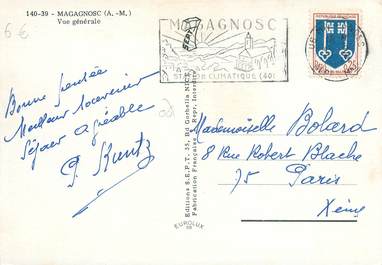 140-39 - MAGAGNOSC (A.-M.)
Vue générale
6 €
MAGAGNOSC
STATION CLIMATIQUE
Bonne pensée
Meilleur souvenir
Séjour agréable
P. Kuntz
Editions S.E.P.T. 55, Bd Gorbella NICE
Fabrication Française - Repr. Interdite
EUROLUX
Mademoiselle Bolard
8 Rue Robert Blache
75 Paris
Xème